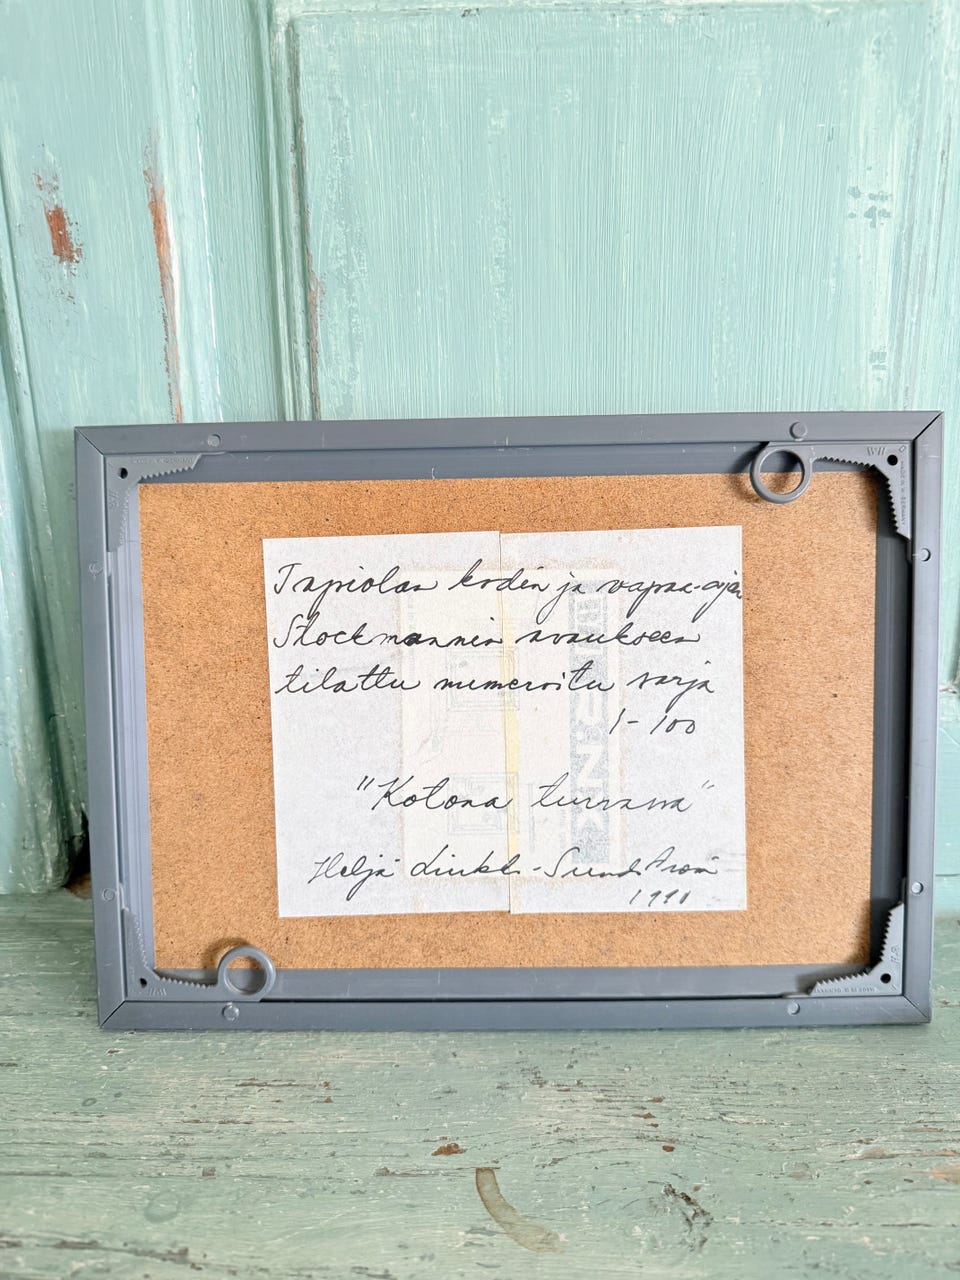 Tapiolan kodin ja vapaa-ajan
Stockmannin avaukseen
tilattu numeroitu sarja
1-100
"Kotona turvassa"
Heljä Liukko-Sundström
1991